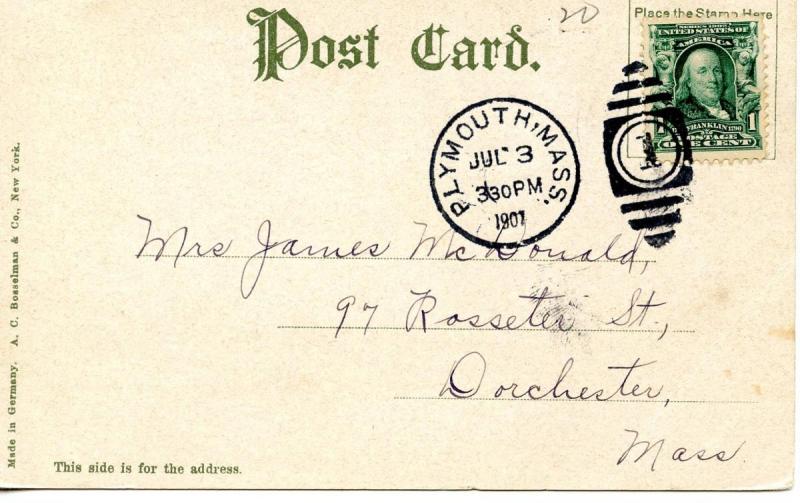 20
Place the Stamp Here
Post Card.
SERIES 1902
UNITED STATES OF
AMERICA
FRANKLIN 1790
1 1
POSTAGE
ONE CENT
PLYMOUTH, MASS.
JUL 3
330 PM
1907
1
Mrs James McDonald,
97 Rosseter St.,
Dorchester,
Mass.
This side is for the address.
Made in Germany. A. C. Bosselman & Co., New York.